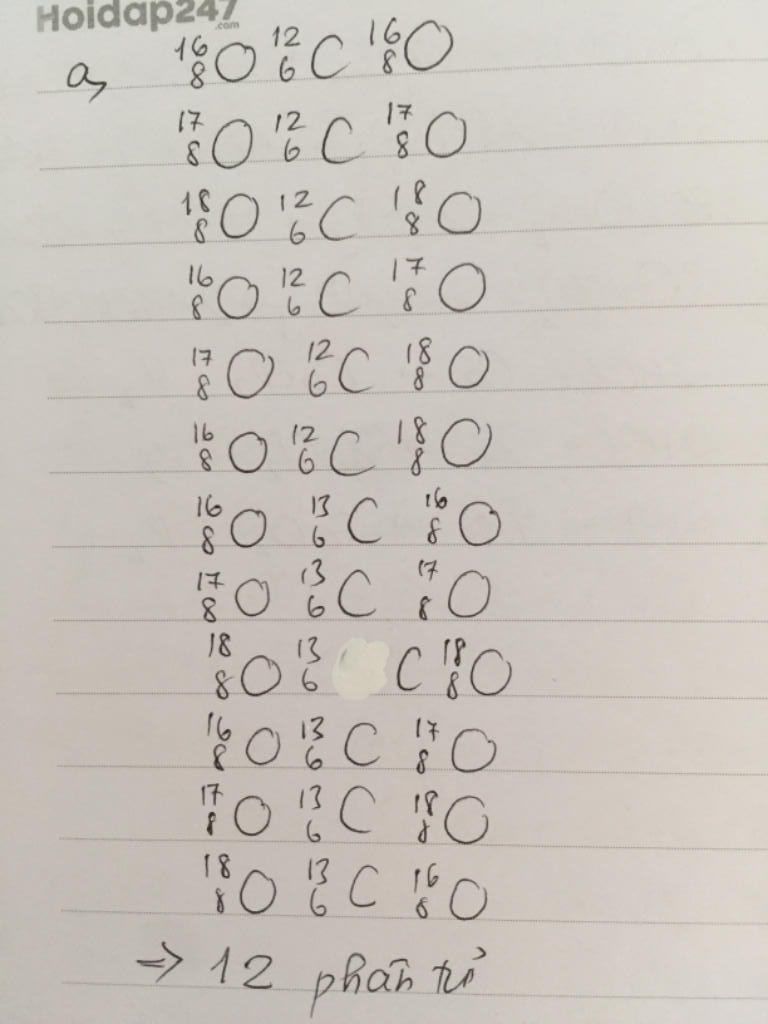 Hoidap247
.com
a, ¹⁶₈O ¹²₆C ¹⁶₈O
¹⁷₈O ¹²₆C ¹⁷₈O
¹⁸₈O ¹²₆C ¹⁸₈O
¹⁶₈O ¹²₆C ¹⁷₈O
¹⁷₈O ¹²₆C ¹⁸₈O
¹⁶₈O ¹²₆C ¹⁸₈O
¹⁶₈O ¹³₆C ¹⁶₈O
¹⁷₈O ¹³₆C ¹⁷₈O
¹⁸₈O ¹³₆C ¹⁸₈O
¹⁶₈O ¹³₆C ¹⁷₈O
¹⁷₈O ¹³₆C ¹⁸₈O
¹⁸₈O ¹³₆C ¹⁶₈O
=> 12 phân tử